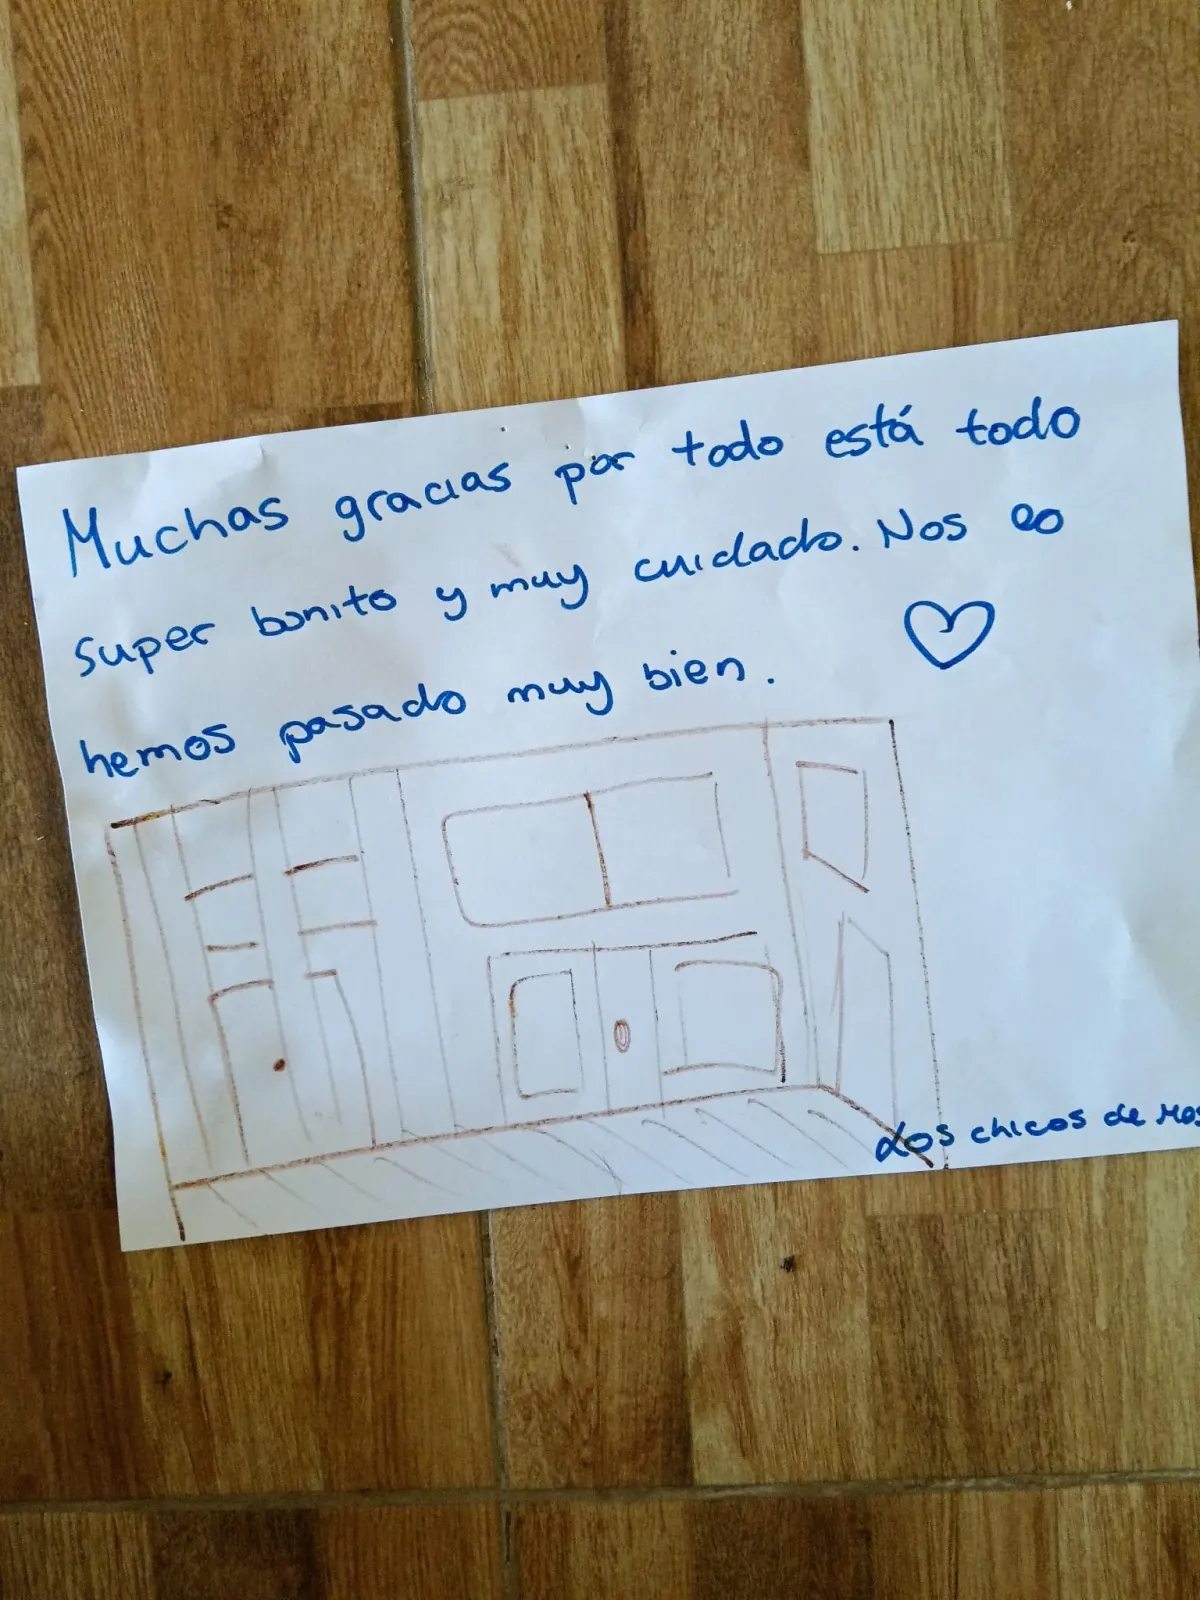 Muchas gracias por todo está todo
super bonito y muy cuidado. Nos lo
hemos pasado muy bien.
Los chicos de